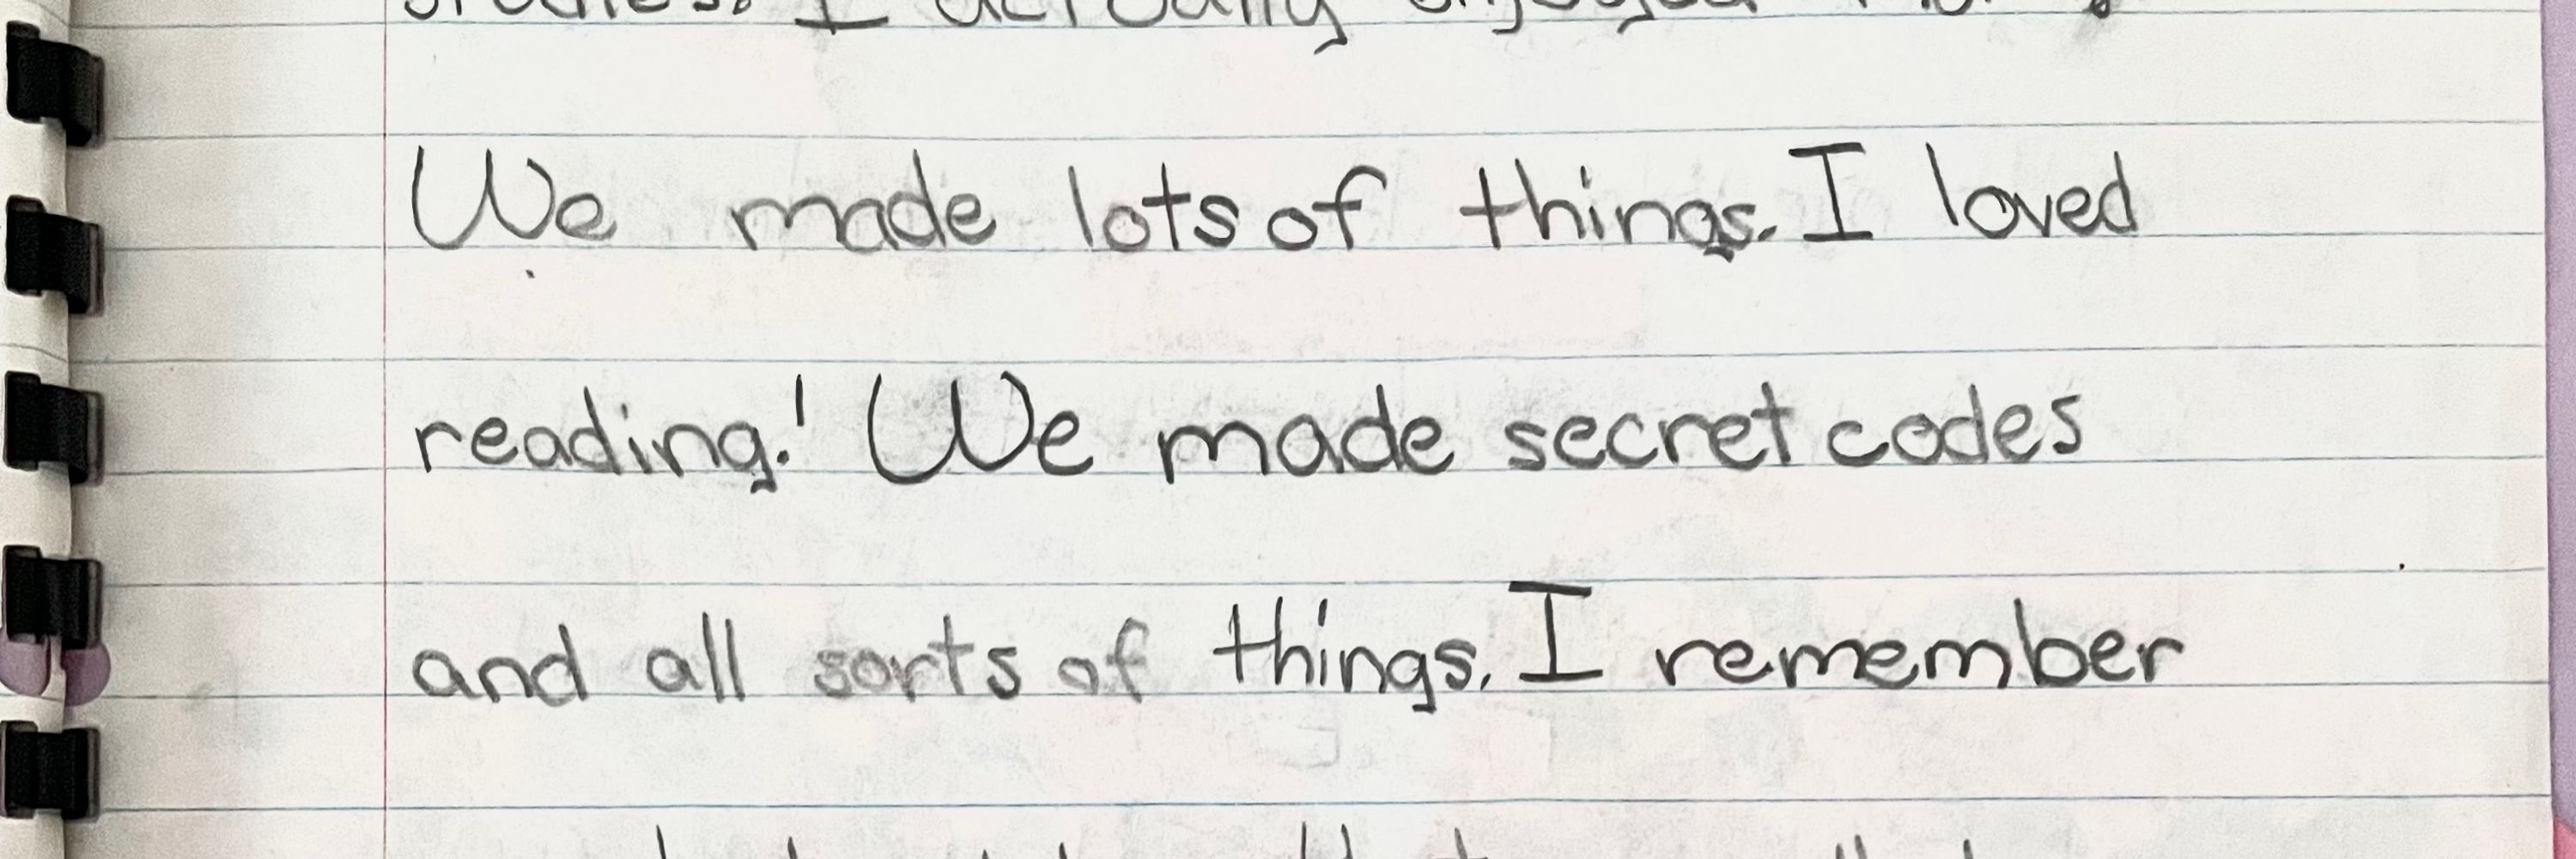 I actually enjoyed
We made lots of things. I loved
reading! We made secret codes
and all sorts of things. I remember